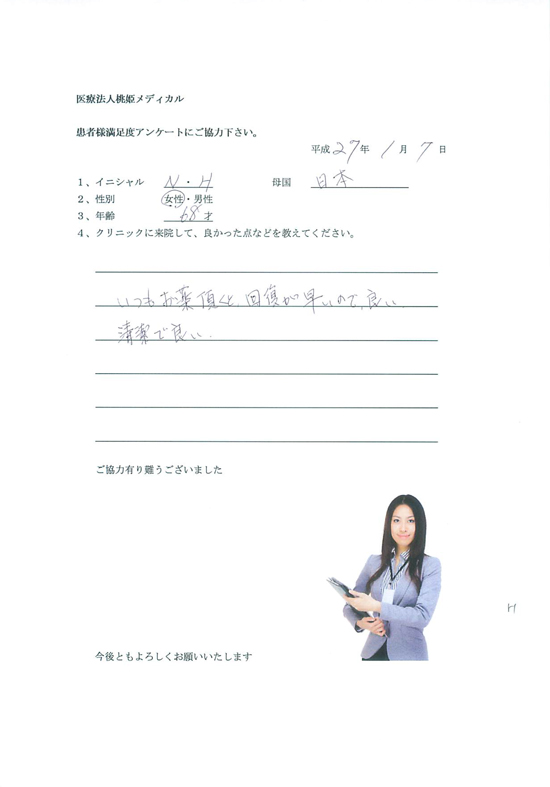 医療法人桃姫メディカル
患者様満足度アンケートにご協力下さい。
平成 27年 1月 7日
1、イニシャル N・H 母国 日本
2、性別 女性・男性
3、年齢 68才
4、クリニックに来院して、良かった点などを教えてください。
いつもお薬頂くと、回復が早いので、良い。
清潔で良い。
ご協力有り難うございました
H
今後ともよろしくお願いいたします